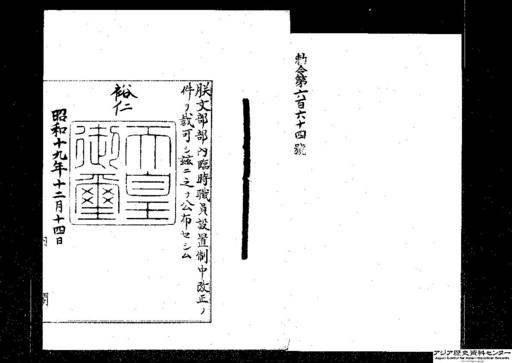 勅令第六百六十四號
朕文部部內臨時職員設置制中改正ノ
件ヲ裁可シ茲ニ之ヲ公布セシム
裕仁
天皇
御璽
昭和十九年十二月十四日
内閣
アジア歴史資料センター
Japan Center for Asian Historical Records